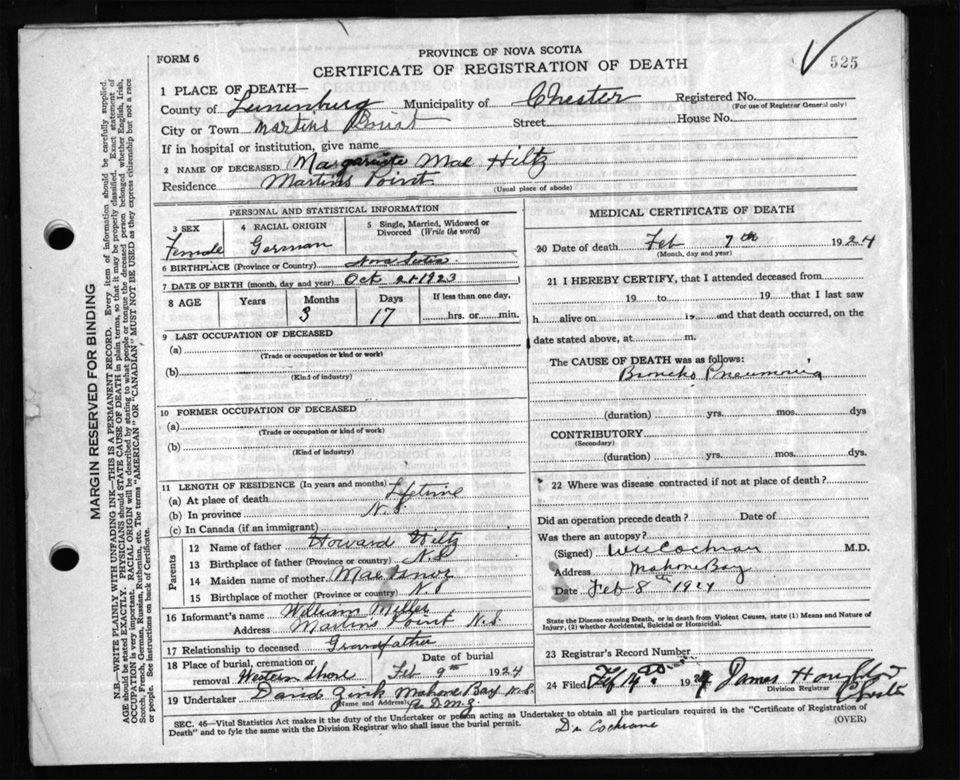 FORM 6
PROVINCE OF NOVA SCOTIA
CERTIFICATE OF REGISTRATION OF DEATH
525
1 PLACE OF DEATH—
County of Lunenburg Municipality of Chester Registered No.
(For use of Registrar General only)
City or Town Martins Point Street House No.
If in hospital or institution, give name
2 NAME OF DECEASED Mae Hiltz
Residence Martins Point (Usual place of abode)
PERSONAL AND STATISTICAL INFORMATION
3 SEX 4 RACIAL ORIGIN 5 Single, Married, Widowed or Divorced (Write the word)
Female German
6 BIRTHPLACE (Province or Country) Nova Scotia
7 DATE OF BIRTH (month, day and year) Oct 21 1923
8 AGE Years Months Days If less than one day,
3 17 hrs. or min.
9 LAST OCCUPATION OF DECEASED
(a)
(Trade or occupation or kind or work)
(b)
(Kind of industry)
10 FORMER OCCUPATION OF DECEASED
(a)
(Trade or occupation or kind of work)
(b)
(Kind of industry)
11 LENGTH OF RESIDENCE (In years and months)
(a) At place of death Lifetime
(b) In province N.S.
(c) In Canada (if an immigrant)
Parents
12 Name of father Howard Hiltz
13 Birthplace of father (Province or country) N.S
14 Maiden name of mother Mae
15 Birthplace of mother (Province or country) N.S
16 Informant's name William Miller
Address Martins Point N.S.
17 Relationship to deceased Grandfather
18 Place of burial, cremation or removal Western Shore Date of burial Feb 9th 1924
19 Undertaker David Zink Mahone Bay N.S.
(Name and Address) D.M.Z.
MEDICAL CERTIFICATE OF DEATH
20 Date of death Feb 7th 1924
(Month, day and year)
21 I HEREBY CERTIFY, that I attended deceased from
19 to 19 that I last saw
h alive on 19 and that death occurred, on the
date stated above, at m.
The CAUSE OF DEATH was as follows:
Broncho Pneumonia
(duration) yrs. mos. dys
CONTRIBUTORY
(Secondary)
(duration) yrs. mos. dys.
22 Where was disease contracted if not at place of death?
Did an operation precede death? Date of
Was there an autopsy?
(Signed) Cochran M.D.
Address Mahone Bay
Date Feb 8th 1924
State the Disease causing Death, or in death from Violent Causes, state (1) Means and Nature of Injury, (2) whether Accidental, Suicidal or Homicidal.
23 Registrar's Record Number
24 Filed Feb 14 James
Division Registrar
Chester
SEC. 46—Vital Statistics Act makes it the duty of the Undertaker or person acting as Undertaker to obtain all the particulars required in the "Certificate of Registration of
Death" and to fyle the same with the Division Registrar who shall issue the burial permit.
(OVER)
Dr Cochrane
MARGIN RESERVED FOR BINDING
N.B.—WRITE PLAINLY WITH UNFADING INK—THIS IS A PERMANENT RECORD. Every item of information should be carefully supplied.
AGE should be stated EXACTLY. PHYSICIANS should STATE CAUSE OF DEATH in plain terms, so that it may be properly classified. Exact statement of
OCCUPATION is very important. RACIAL ORIGIN will be described by stating to what people or tongue the deceased person belonged whether English, Irish,
Scotch, French, German, Russian, Ruthenian, etc. The terms "AMERICAN" OR "CANADIAN" MUST NOT BE USED as they express citizenship but not a race
or people. See instructions on back of Certificate.